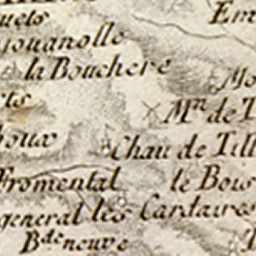 uets Em
ouanolle
la Bouchere
ets Mo
Mⁿ de T
houx
Chau de Till
Fromental le Bois
general les Cardaires
Bᵈᵉ neuve